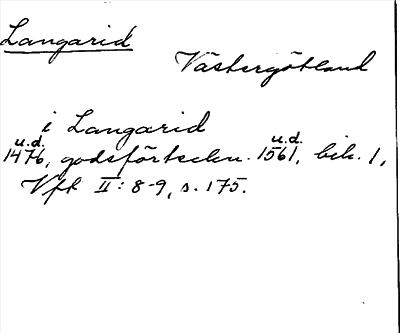 Langarid
Västergötland
i Langarid
u.d. u.d.
1476, godsförteckn. 1561, bih. 1,
Vft II: 8-9, s. 175.